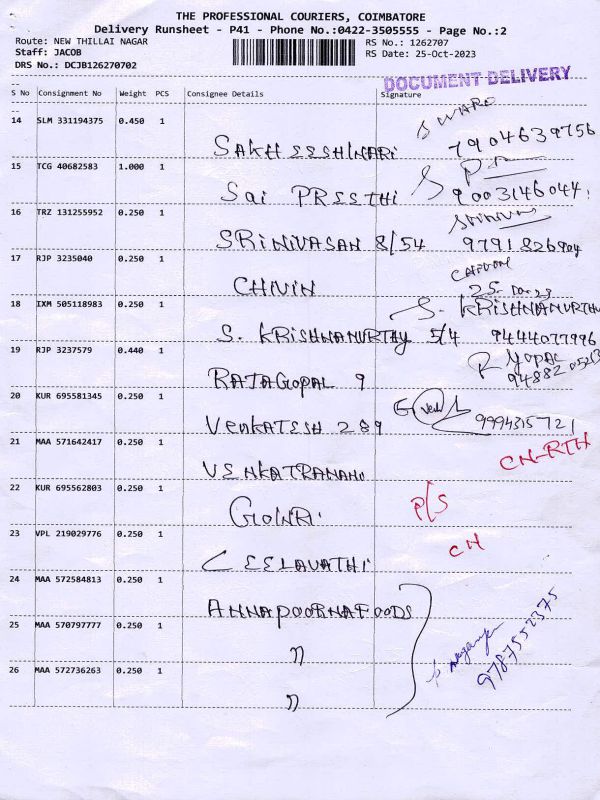 THE PROFESSIONAL COURIERS, COIMBATORE
Delivery Runsheet - P41 - Phone No.:0422-3505555 - Page No.:2
Route: NEW THILLAI NAGAR RS No.: 1262707
Staff: JACOB RS Date: 25-Oct-2023
DRS No.: DCJB126270702
DOCUMENT DELIVERY
S No Consignment No Weight PCS Consignee Details Signature
14 SLM 331194375 0.450 1
SAKHEESHWARI 7904639756
15 TCG 40682583 1.000 1
Sai PREETHI 9003146044
16 TRZ 131255952 0.250 1
SRINIVASAN 8/54 9791826904
17 RJP 3235040 0.250 1
CHIVIN
18 IXM 505118983 0.250 1 S. KRISHNAMURTHY
S. KRISHNAMURTHY 5/4 9444077996
19 RJP 3237579 0.440 1
RAJAGOPAL 9
20 KUR 695581345 0.250 1
VENKATESH 289 9994315721
21 MAA 571642417 0.250 1 CN-RTH
VENKATRAMANI
22 KUR 695562803 0.250 1 P/S
23 VPL 219029776 0.250 1 CH
LEELAVATHI
24 MAA 572584813 0.250 1
ANNAPOORNAFOODS
25 MAA 570797777 0.250 1
"
26 MAA 572736263 0.250 1
"
9787552375